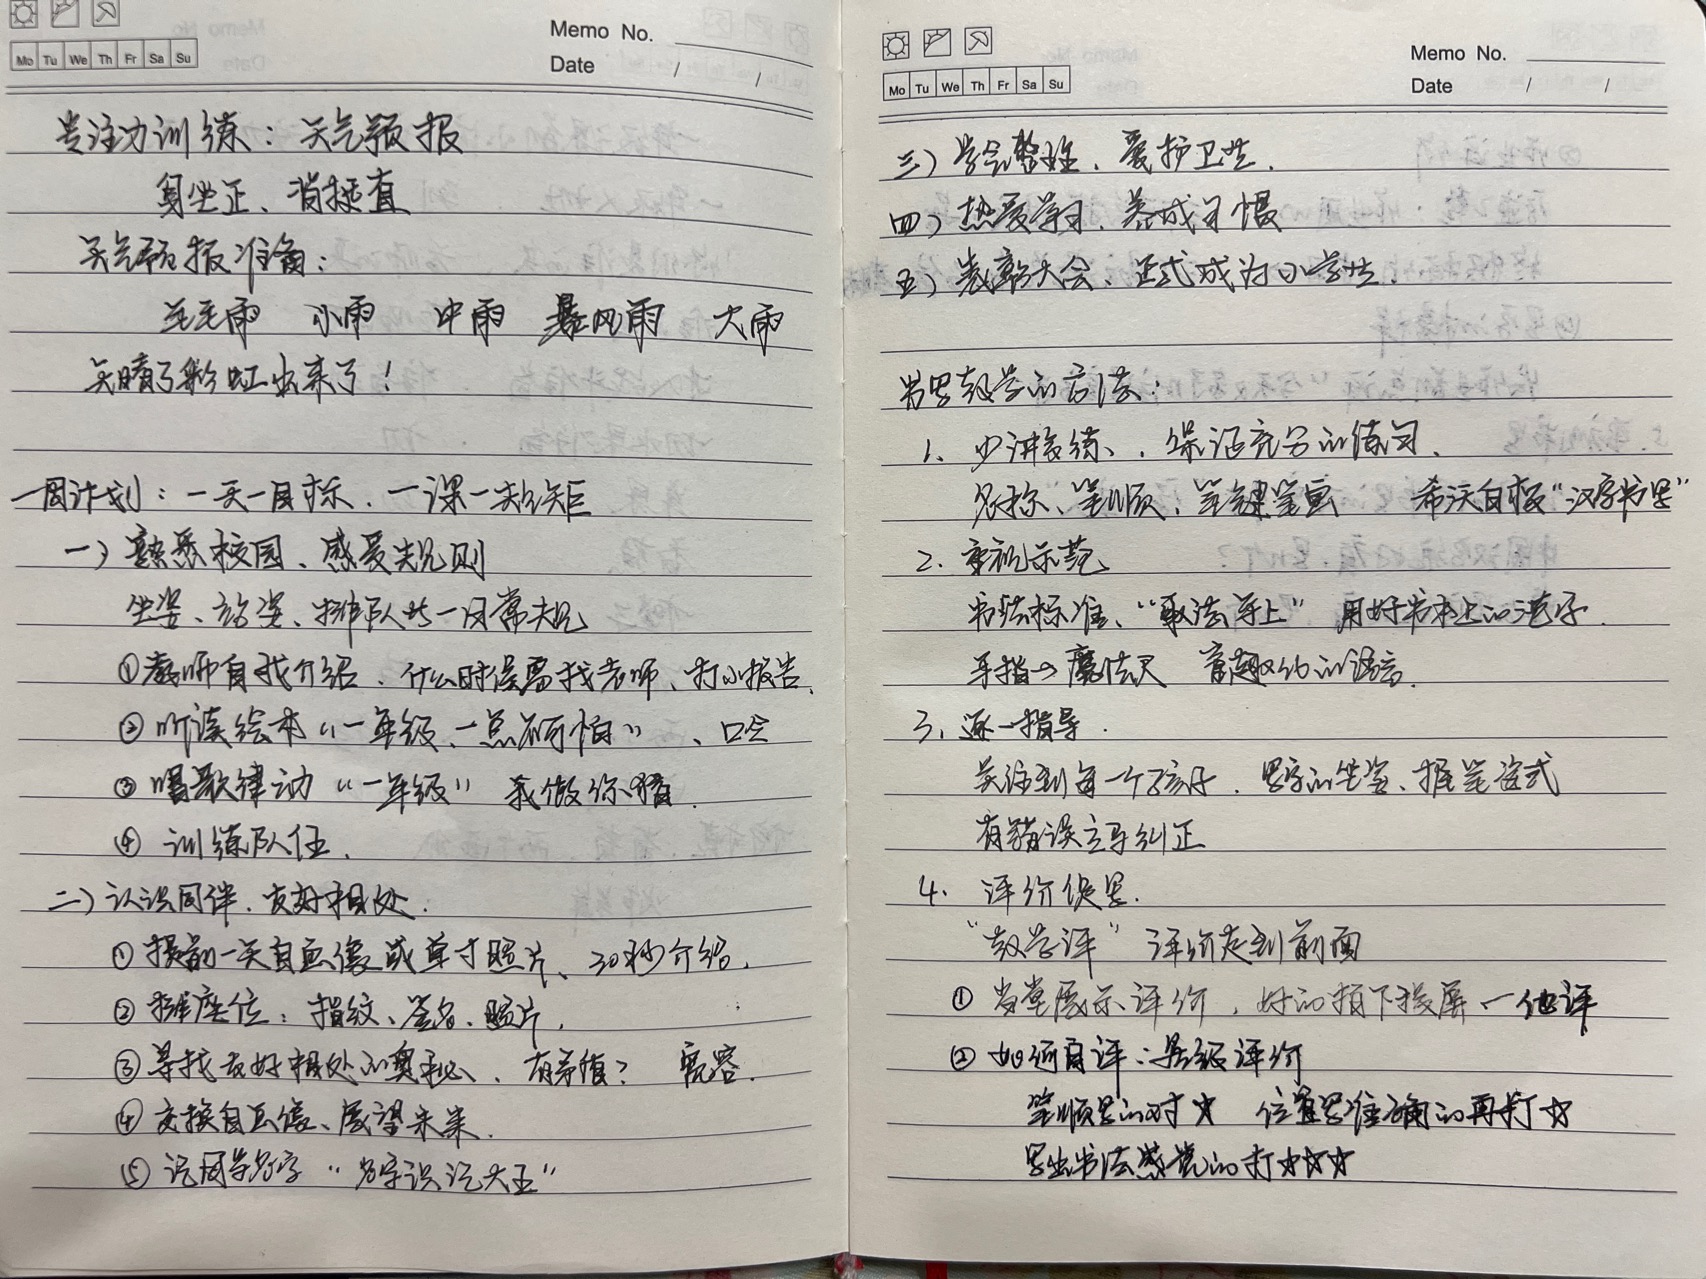 Memo No.
Mo Tu We Th Fr Sa Su
Date / /
专注力训练：天气预报
身坐正、背挺直
天气预报准备：
毛毛雨 小雨 中雨 暴风雨 大雨
天晴了彩虹出来了！
一周计划：一天一目标、一课一规矩
一）熟悉校园、感受规则
坐姿、站姿、排队等一日常规
①教师自我介绍、什么时候需找老师、打小报告、
②听读绘本“一年级、一点不可怕”、口令
③唱歌律动“一年级” 我做你猜.
④ 训练队伍.
二）认识同伴、友好相处.
① 提前一天自画像或单寸照片、30秒介绍.
② 排座位：指纹、签名、照片.
③ 寻找友好相处的奥秘、有矛盾？ 宽容.
④ 交换自画像、展望未来.
⑤ 记同学名字“名字识记大王”
Memo No.
Mo Tu We Th Fr Sa Su
Date / /
三）学会整理、爱护卫生.
四）热爱学习、养成习惯
五）表彰大会、正式成为小学生.
书写教学的方法：
1、少讲多练、, 保证充分的练习.
名称、笔顺、笔键笔画 希沃白板“汉字书写”
2. 重视示范
书法标准、“取法乎上” 用好书本上的范字.
手指→魔法尺 童趣化的语言.
3、逐一指导.
关注到每一个孩子、写字的坐姿、握笔姿式
有错误立马纠正
4. 评价促写.
“教学评” 评价走到前面
① 当堂展示评价，好的拍下投屏 一他评
② 如何自评：星级评价
笔顺写的对☆ 位置写准确的再打☆
写出书法感觉的打☆☆☆